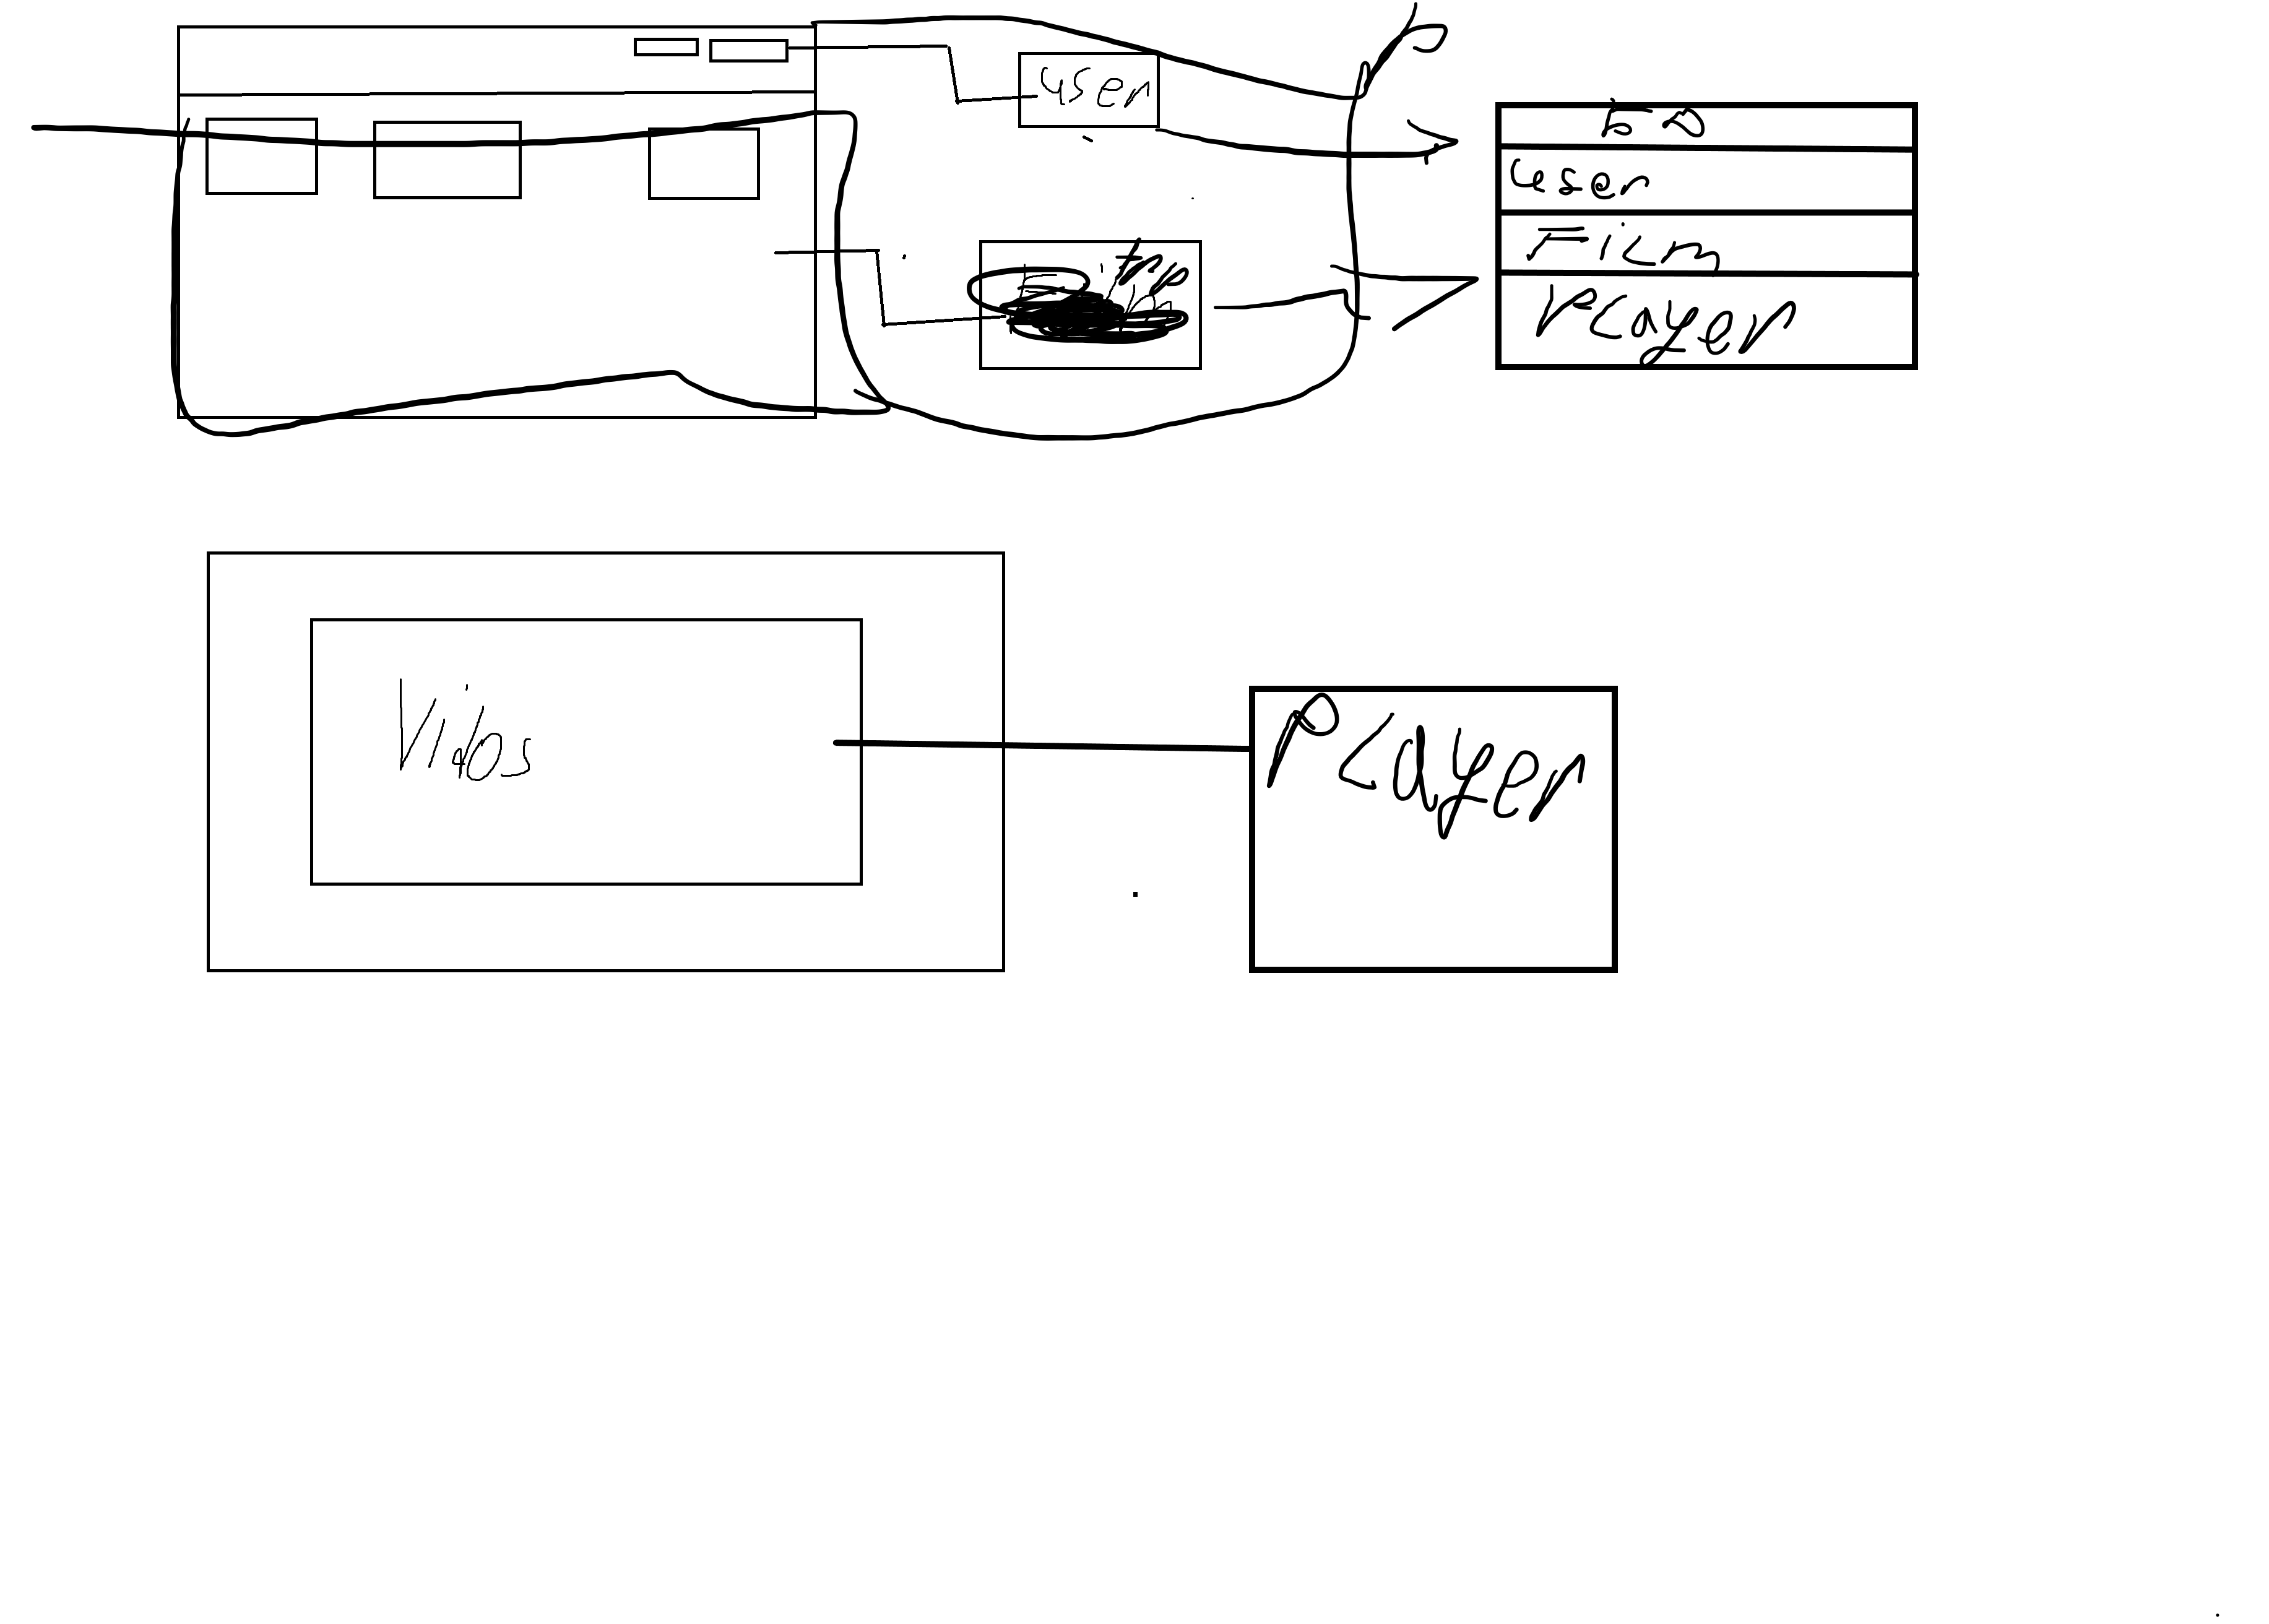 user
БД
user
Film
Player
Vidos
Player